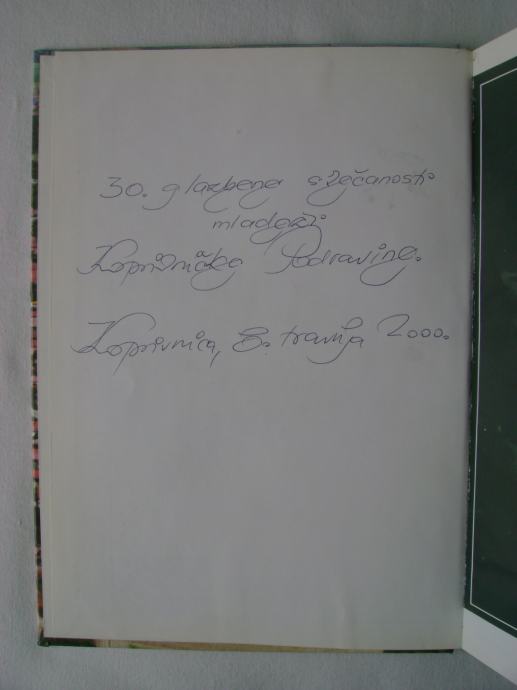 30. glazbene svečanosti
mladeži
Koprivničke Podravine.
Koprivnica, 8. travnja 2000.